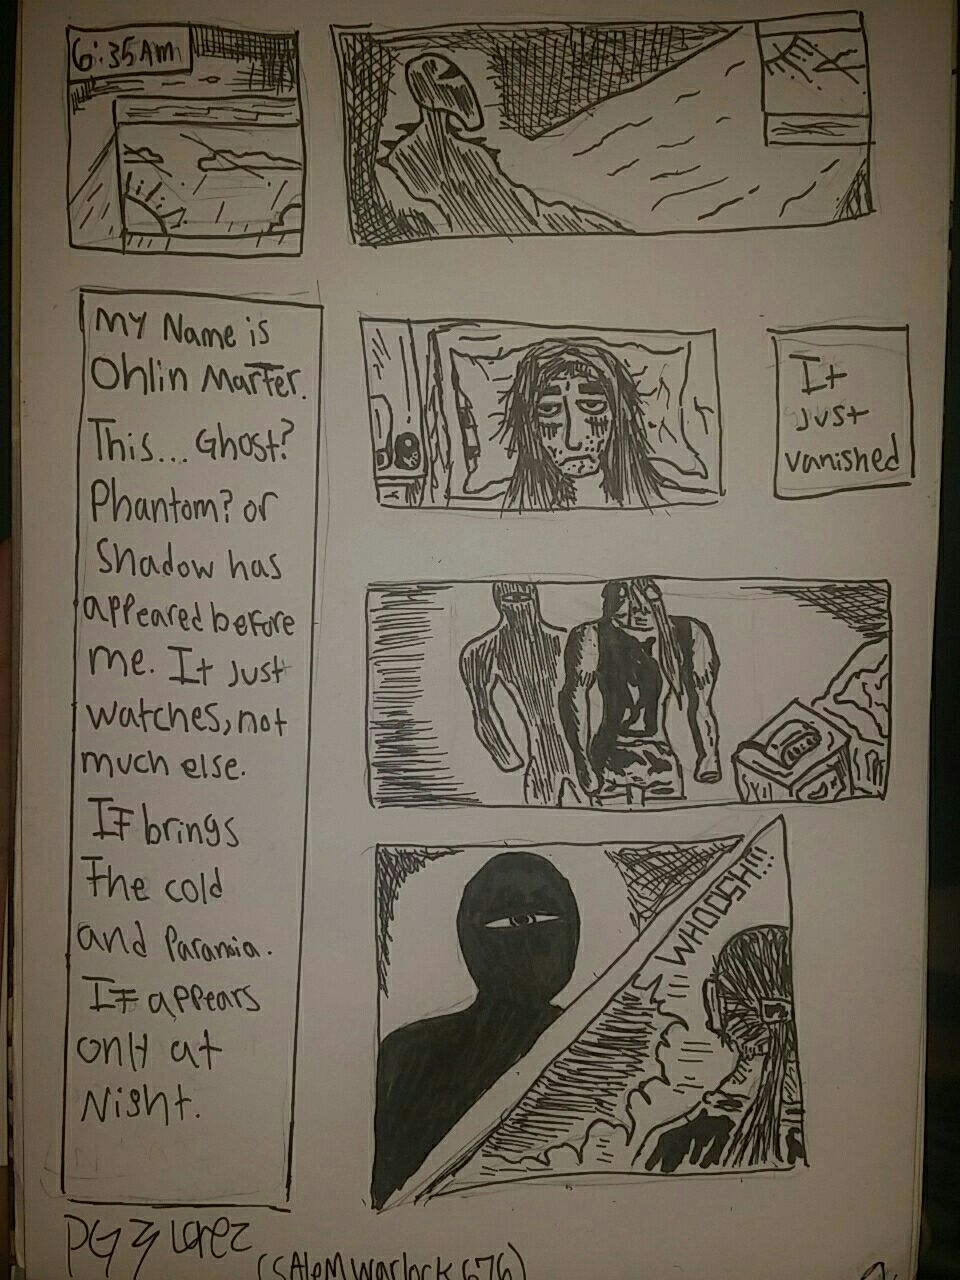 6:35AM
My Name is
Ohlin Marter.
This... Ghost?
Phantom? or
Shadow has
appeared before
me. It just
watches, not
much else.
It brings
The cold
and Paranoia.
It appears
only at
Night.
It
just
vanished
WHOOSH!!!
PG 3 Lopez
(SAleMwarlock676)